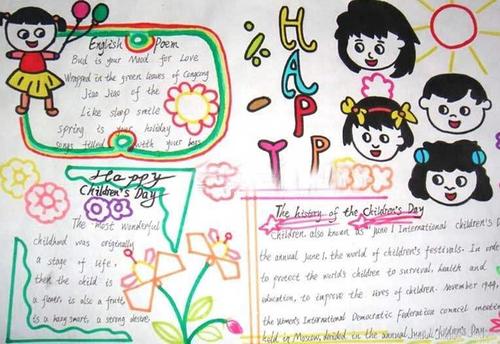 English Poem
Bud is your Mood for Love
Wrapped in the green leaves of
Jiao Jiao of the
Like sleep smile
spring is your holiday
songs filled with your
HAPPY
Happy
Children's Day
The most wonderful
childhood was originally
a stage of life,
then the child is
a flower, is also a fruit,
is a hazy smart, a strong desire.
The history of the Children's Day
Children, also known as June 1 International children's D
the annual June 1, the world of children's festivals. In orde
to protect the world's children to survival, health and
education, to improve the lives of children. November 1949,
the Women's International Democratic Federation council meetin
held in Moscow, decided in the annual June 1, Children's Day.